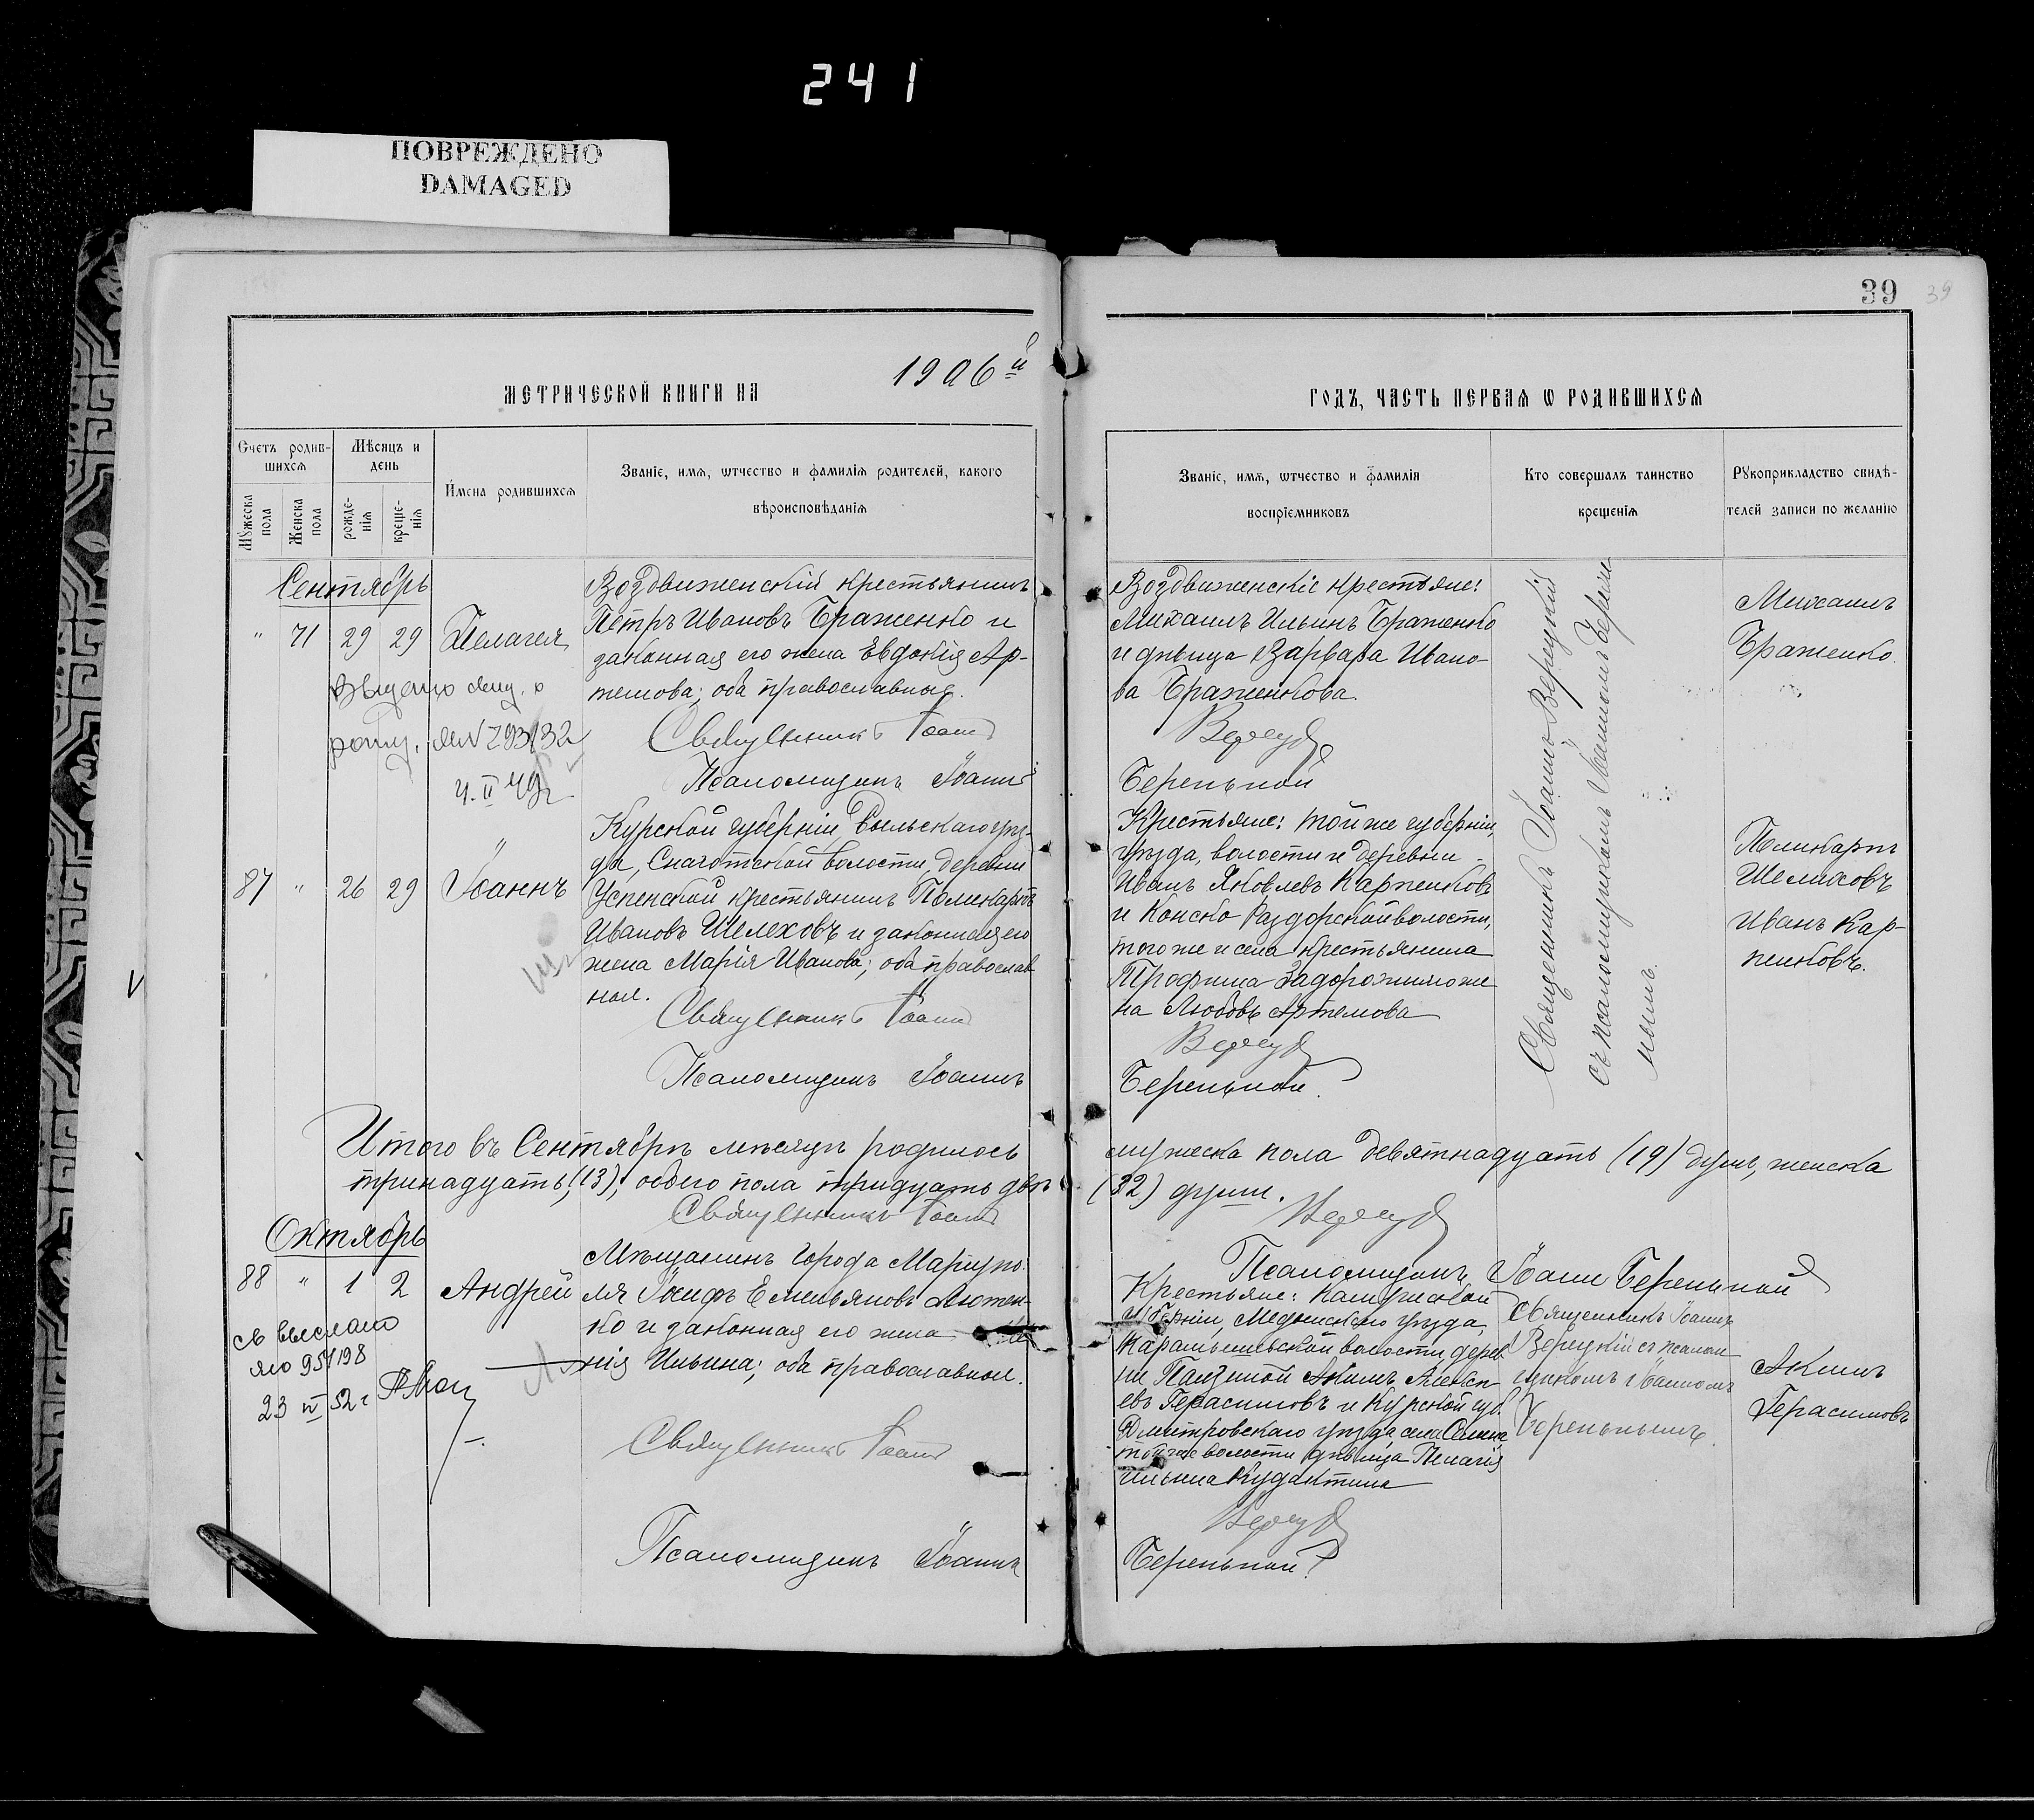 241
ПОВРЕЖДЕНО
DAMAGED
39
39
МЕТРИЧЕСКОЙ КНИГИ НА
1906й
ГОДЪ, ЧАСТЬ ПЕРВАЯ Ѡ РОДИВШИХСЯ
Счетъ родив-
шихся
Мѣсяцъ и
день
Мужеска
пола
Женска
пола
рожде-
нія
креще-
нія
Имена родившихся
Званіе, имя, ѡтчество и фамилія родителей, какого
вѣроисповѣданія
Званіе, имя, ѡтчество и фамилія
воспріемниковъ
Кто совершалъ таинство
крещенія
Рукоприкладство свидѣ-
телей записи по желанію
Сентябрь
" 71 29 29 Пелагея
Воздвиженскій крестьянинъ
Петръ Ивановъ Браженко и
законная его жена Евдокія Ар-
темова; оба православные.
Священникъ Іоаннъ
Псаломщикъ Іоаннъ
4.II 49г
Воздвиженскіе крестьяне:
Михаилъ Ильинъ Браженко
и дѣвица Варвара Ивано-
ва Браженкова.
Верецкій
Береньной
Священникъ Іоаннъ Верецкій
съ псаломщикомъ Іоанномъ Берень-
нымъ.
Михаилъ
Браженко.
"
87 " 26 29 Іоаннъ
Курской губерніи, Рыльскаго уѣз-
да, Снаготской волости, деревни
Успенской крестьянинъ Поликарпъ
Ивановъ Шелеховъ и законная его
жена Марія Иванова; оба православ
ные.
Священникъ Іоаннъ
Псаломщикъ Іоаннъ
Крестьяне: той же губерніи,
уѣзда, волости и деревни
Иванъ Яковлевъ Карпенковъ
и Конско Раздорской волости,
того же и села крестьянина
Трофима Задорожняго же
на Любовь Артемова
Верецкій
Береньной.
Поликарпъ
Шелиховъ
Иванъ Кар-
пенковъ.
Итого въ Сентябрѣ мѣсяцѣ родилось
мужеска пола девятнадцать (19) душъ, женска
тринадцать, (13), обоего пола тридцать двѣ
(32) души.
Священникъ Іоаннъ
Верецкій
Псаломщикъ Іоаннъ Береньной
Октябрь
88 " 1 2 Андрей
Мѣщанинъ города Маріупо
ля Іосифъ Емельяновъ Лютен-
ко и законная его жена
нія Ильина; оба православные.
Священникъ Іоаннъ
Псаломщикъ Іоаннъ
23 52 г
Крестьяне: Калужской
губерніи, Медынскаго уѣзда,
волости дерев
ни Акимъ Алексѣ-
евъ Герасимовъ и Курской губ.
Дмитровскаго уѣзда села
той же волости дѣвица Пелагія
Ильина
Верецкій
Береньной
Священникъ Іоаннъ
Верецкій съ псалом
щикомъ Іоанномъ
Береньнымъ.
Акимъ
Герасимовъ